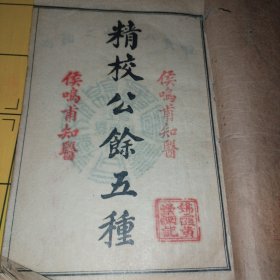 侯鳴甫知醫
精校公餘五種
侯鳴甫知醫